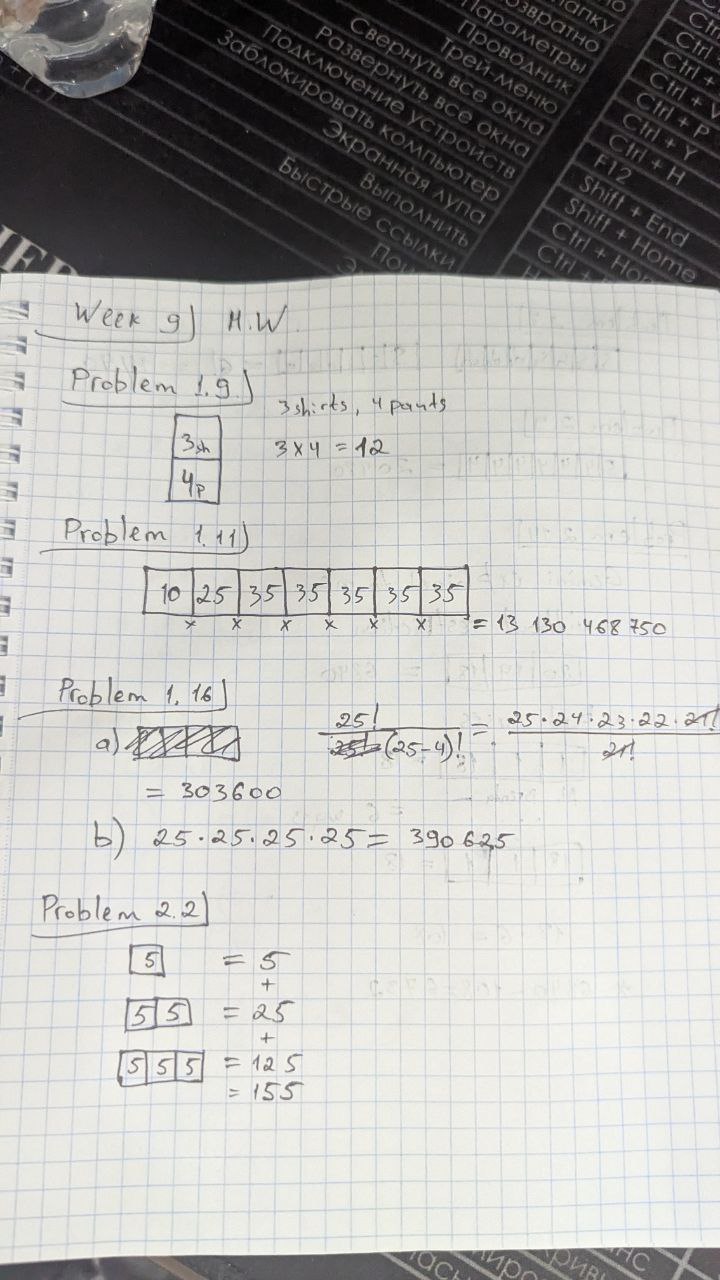 папку
возвратно
Параметры
Проводник
Трей-меню
Свернуть все окна
Развернуть все окна
Подключение устройств
Заблокировать компьютер
Экранная лупа
Выполнить
Быстрые ссылки
Ctrl
Ctrl +
Ctrl + V
Ctrl + P
Ctrl + Y
Ctrl + H
F12
Shift + End
Shift + Home
Week 9) H.W
Problem 1.9)
3 shirts, 4 pants
3sh
3 x 4 = 12
4p
Problem 1.11)
10 25 35 35 35 35 35
x x x x x x = 13 130 468 750
Problem 1.16)
a) 25! / (25-4)! = 25·24·23·22·21! / 21!
= 303600
b) 25·25·25·25 = 390625
Problem 2.2)
5 = 5
+
5 5 = 25
+
5 5 5 = 125
= 155